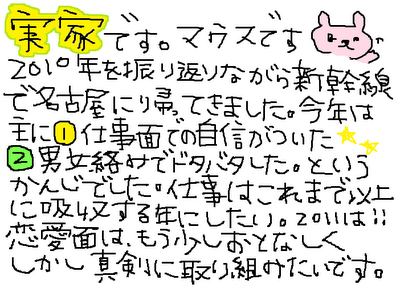 実家です。マウスです
2010年を振り返りながら新幹線
で名古屋に帰ってきました。今年は
主に①仕事面での自信がついた
②男女絡みでドタバタした。という
かんじでした。仕事はこれまで以上
に吸収する年にしたい。2011は!!
恋愛面は、もう少しおとなしく
しかし真剣に取り組みたいです。